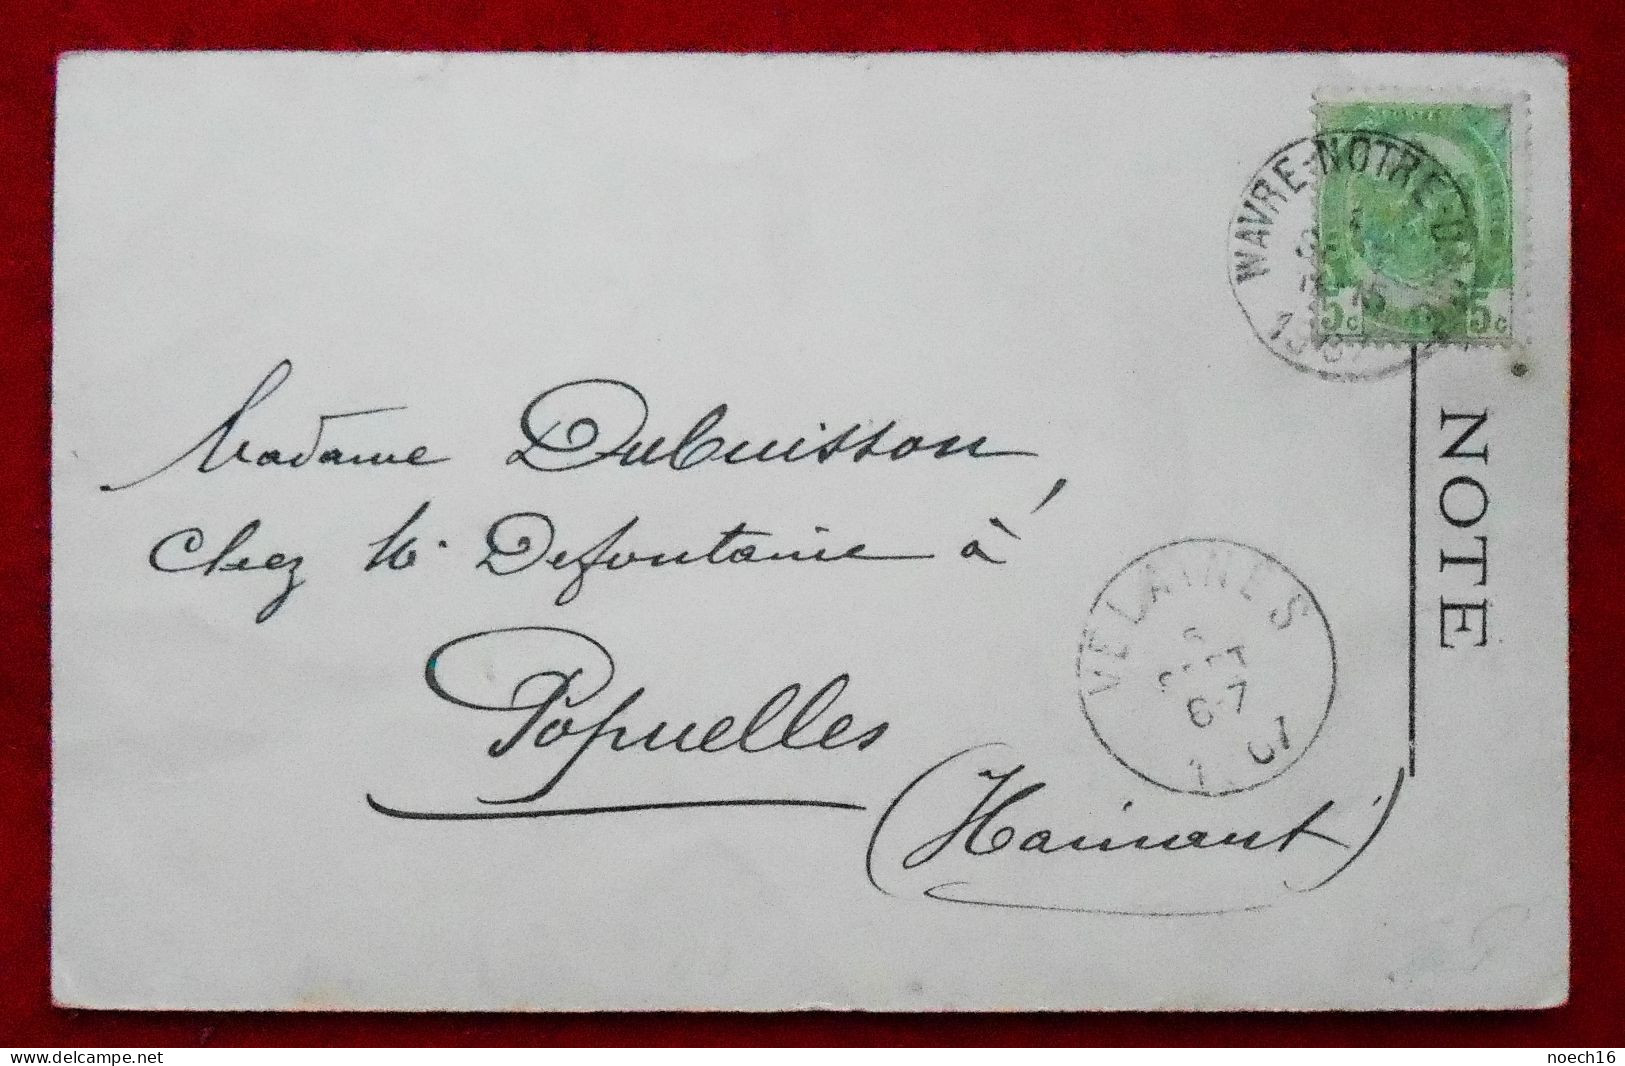 WAVRE-NOTRE-D
15
5c 5c
NOTE
Madame Dubuisson
chez M. Defontaine à
Popuelles
(Hainaut)
VELAINES
SEPT
6-7
delcampe.net
noech16